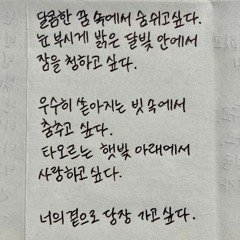 달콤한 꿈 속에서 숨쉬고싶다.
눈 부시게 밝은 달빛 안에서
잠을 청하고 싶다.
우수히 쏟아지는 빗 속에서
춤추고 싶다.
타오르는 햇빛 아래에서
사랑하고싶다.
너의 곁으로 당장 가고싶다.